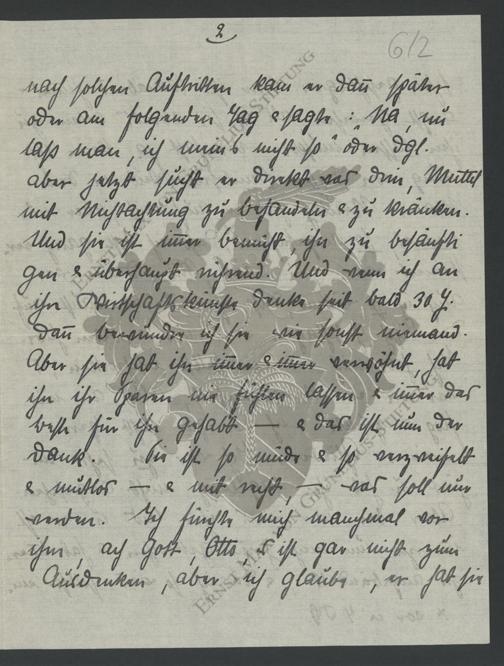 2
6/2
nach solchen Auftritten kam er dan̄ später
oder am folgenden Tag & sagte: „Na, nu
laß man, ich meins nicht so" oder dgl.
Aber jetzt sucht er direkt was drin, Muttel
mit Nichtachtung zu behandeln & zu kränken.
Und sie ist im̄er bemüht, ihn zu besänfti
gen & überhaupt rührend. Und wenn ich an
ihre Wirtschaftskünste denke seit bald 30 J.
dan̄ bewundre ich sie wie sonst niemand.
Aber sie hat ihn im̄er & im̄er verwöhnt, hat
ihn ihr Sparen nie fühlen lassen & im̄er das
beste für ihn gehabt — & das ist nun der
Dank. Sie ist so müde & so verzweifelt
& mutlos — & mit recht, — was soll nur
werden. Ich fürchte mich manchmal vor
ihm, ach Gott, Otto, es ist gar nicht zum
Ausdenken, aber ich glaube, er hat sie
ERNST VON GRUNELIUS-STIFTUNG